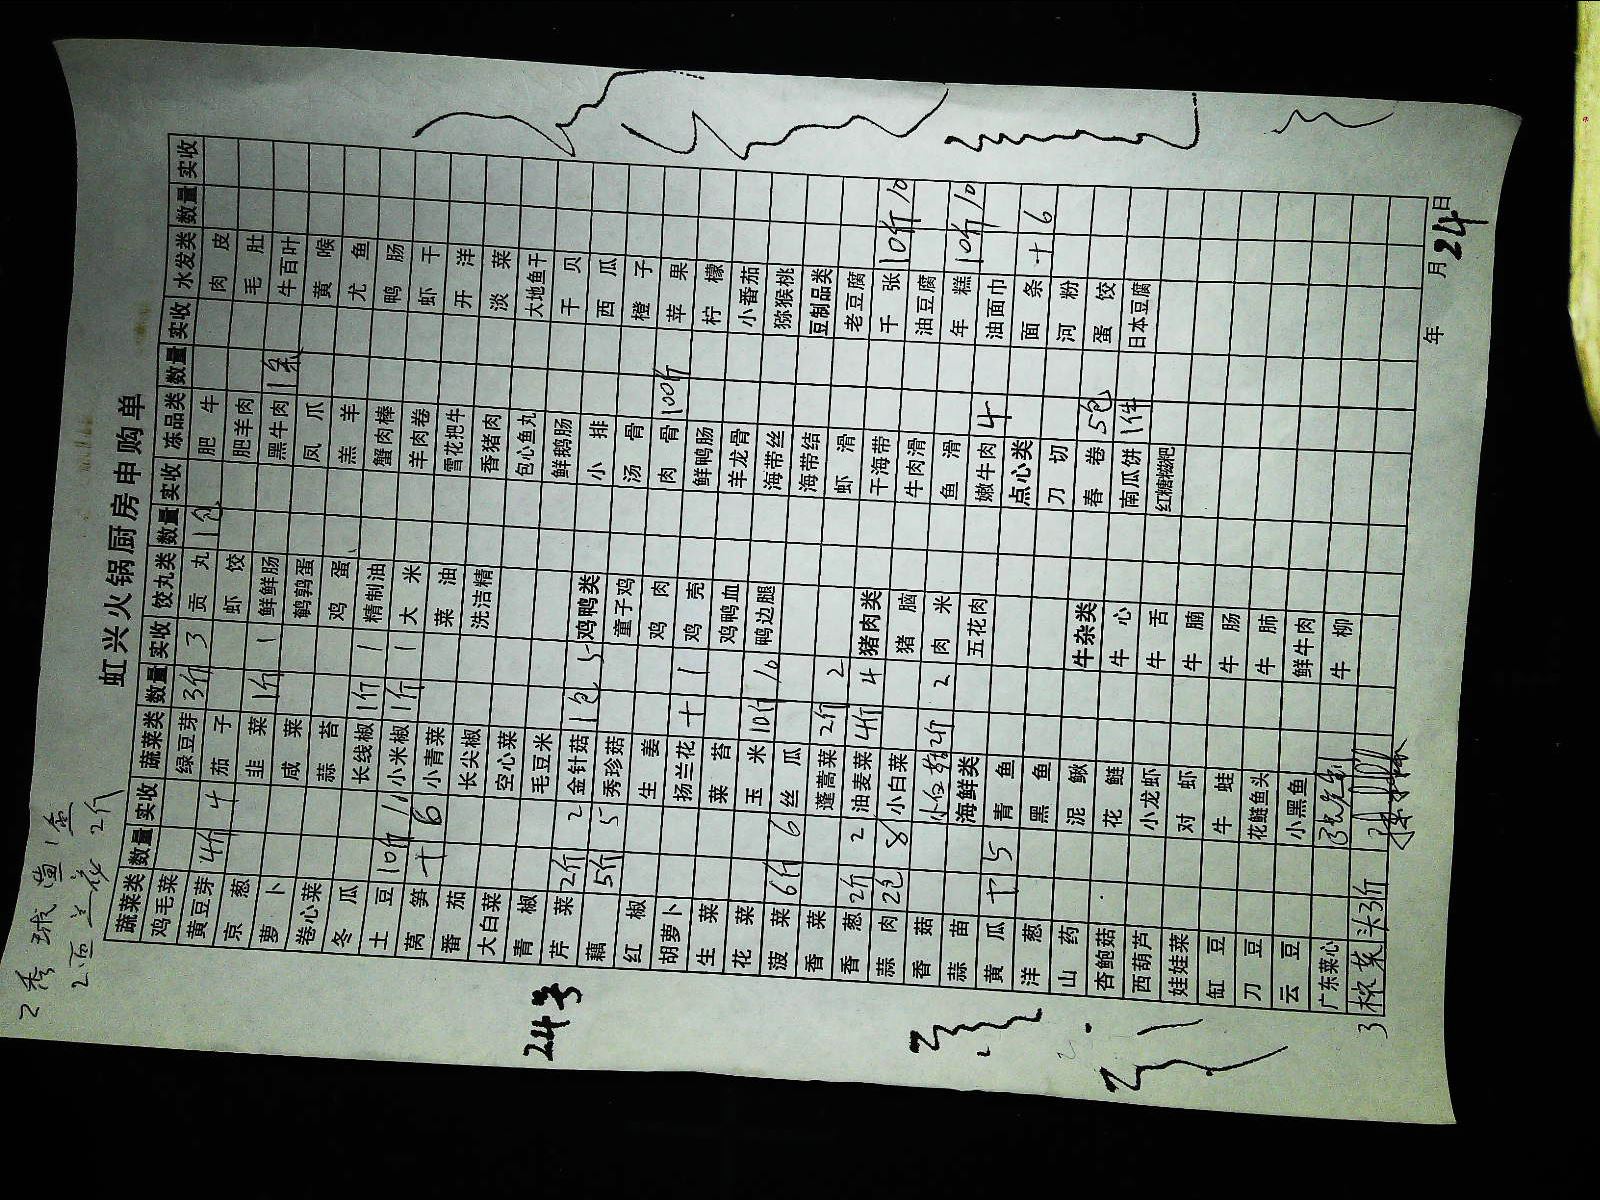 虹兴火锅厨房申购单
24号
蔬菜类 数量 实收 蔬菜类 数量 实收 饺丸类 数量 实收 冻品类 数量 实收 水发类 数量 实收
鸡毛菜 绿豆芽 3斤 3 贡丸 1包 肥牛 肉皮
黄豆芽 4斤 4 茄子 虾饺 肥羊肉 毛肚
京葱 韭菜 1斤 1 鲜鲜肠 黑牛肉 1条 牛百叶
萝卜 咸菜 鹌鹑蛋 凤爪 黄喉
卷心菜 蒜苔 鸡蛋 羔羊 尤鱼
冬瓜 长线椒 1斤 1 精制油 蟹肉棒 鸭肠
土豆 10斤 10 小米椒 1斤 1 大米 羊肉卷 虾干
莴笋 十 6 小青菜 菜油 雪花把牛 开洋
番茄 长尖椒 洗洁精 香猪肉 淡菜
大白菜 空心菜 包心鱼丸 大地鱼干
青椒 毛豆米 鲜鹅肠 干贝
芹菜 2斤 2 金针菇 1包 5 鸡鸭类 小排 西瓜
藕 5斤 5 秀珍菇 童子鸡 汤骨 橙子
红椒 生姜 鸡肉 肉骨 100斤 苹果
胡萝卜 扬兰花 十 1 鸡壳 鲜鸭肠 柠檬
生菜 菜苔 鸡鸭血 羊龙骨 小番茄
花菜 玉米 10斤 10 鸭边腿 海带丝 猕猴桃
菠菜 6斤 6 丝瓜 海带结 豆制品类
香菜 蓬蒿菜 2斤 2 虾滑 老豆腐
香葱 2斤 2 油麦菜 4斤 4 猪肉类 干海带 千张 10斤 10
蒜肉 2包 8 小白菜 猪脑 牛肉滑 油豆腐
香菇 2斤 2 肉米 鱼滑 年糕 10斤 10
蒜苗 海鲜类 五花肉 嫩牛肉 4 油面巾
黄瓜 十 5 青鱼 点心类 面条 十 6
洋葱 黑鱼 刀切 河粉
山药 泥鳅 牛杂类 春卷 5包 蛋饺
杏鲍菇 花鲢 牛心 南瓜饼 1件 日本豆腐
西葫芦 小龙虾 牛舌 红糖糍粑
娃娃菜 对虾 牛腩
缸豆 牛蛙 牛肠
刀豆 花鲢鱼头 牛肺
云豆 小黑鱼 鲜牛肉
广东菜心 牛柳
3斤
年 月 24 日